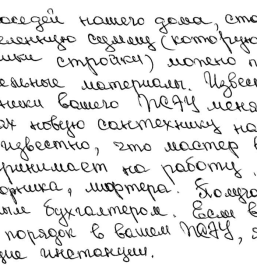 соседей нашего дома, сто
сумму (которую
стройки) можно п
ельные материалы. Извес
ники вашего ЖЭУ меня
ах новую сантехнику на
известно, что мастер в
ринимает на работу
орника, монтера. Получ
ым бухгалтером. Если в
порядок в вашем ЖЭУ, я
щие инстанции.